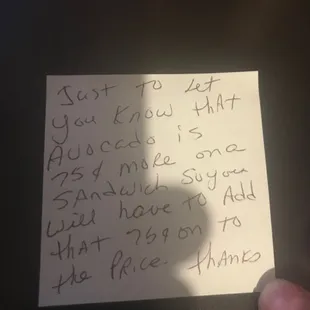 Just to let
you know that
Avocado is
75¢ more on a
sandwich so you
will have to Add
that 75¢ on to
the Price. thanks